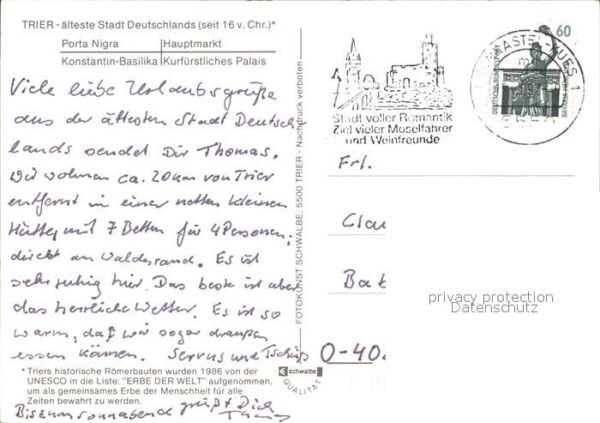 TRIER - älteste Stadt Deutschlands (seit 16 v. Chr.)*
Porta Nigra Hauptmarkt
Konstantin-Basilika Kurfürstliches Palais
Viele liebe Urlaubsgrüße
aus der ältesten Stadt Deutsch
lands sendet Dir Thomas.
Wir wohnen ca. 20 km von Trier
entfernt in einer netten kleinen
Hütte mit 7 Betten für 4 Personen,
direkt am Waldesrand. Es ist
sehr ruhig hier. Das beste ist aber
das herrliche Wetter. Es ist so
warm, daß wir sogar draußen
essen können. Servus und Tschüß
* Triers historische Römerbauten wurden 1986 von der
UNESCO in die Liste: "ERBE DER WELT" aufgenommen,
um als gemeinsames Erbe der Menschheit für alle
Zeiten bewahrt zu werden.
Bis zum Sonnabend grüßt Dich
Thomas
FOTOKUNST SCHWALBE, 5500 TRIER - Nachdruck verboten
schwalbe
QUALITÄT
Stadt voller Romantik
Ziel vieler Moselfahrer
und Weinfreunde
BERNKASTEL-KUES 1
60
DEUTSCHE BUNDESPOST
Frl.
Clau
Bat
O-40
privacy protection
Datenschutz